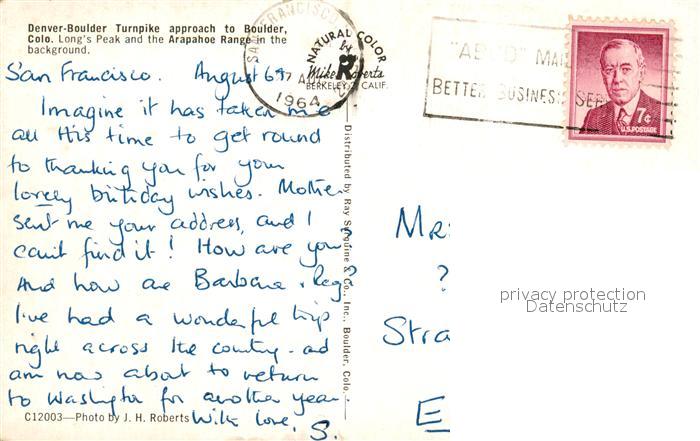 Denver-Boulder Turnpike approach to Boulder,
Colo. Long's Peak and the Arapahoe Range in the
background.
SAN FRANCISCO
1964
NATURAL COLOR
by
R
Mike Roberts
BERKELEY 2, CALIF.
"ABCD" MAI
BETTER BUSINESS SER
7¢
U.S. POSTAGE
San Francisco. August 6th
Imagine it has taken me
all this time to get round
to thanking you for your
lovely birthday wishes. Mother
sent me your address, and I
can't find it! How are you?
And how are Barbara, Reg?
I've had a wonderful trip
right across the country - and
am now about to return
to Washington for another year.
With love, S.
C12003—Photo by J. H. Roberts
Distributed by Ray &, Co., Inc., Boulder, Colo.
Mr
?
Stra
E
privacy protection
Datenschutz